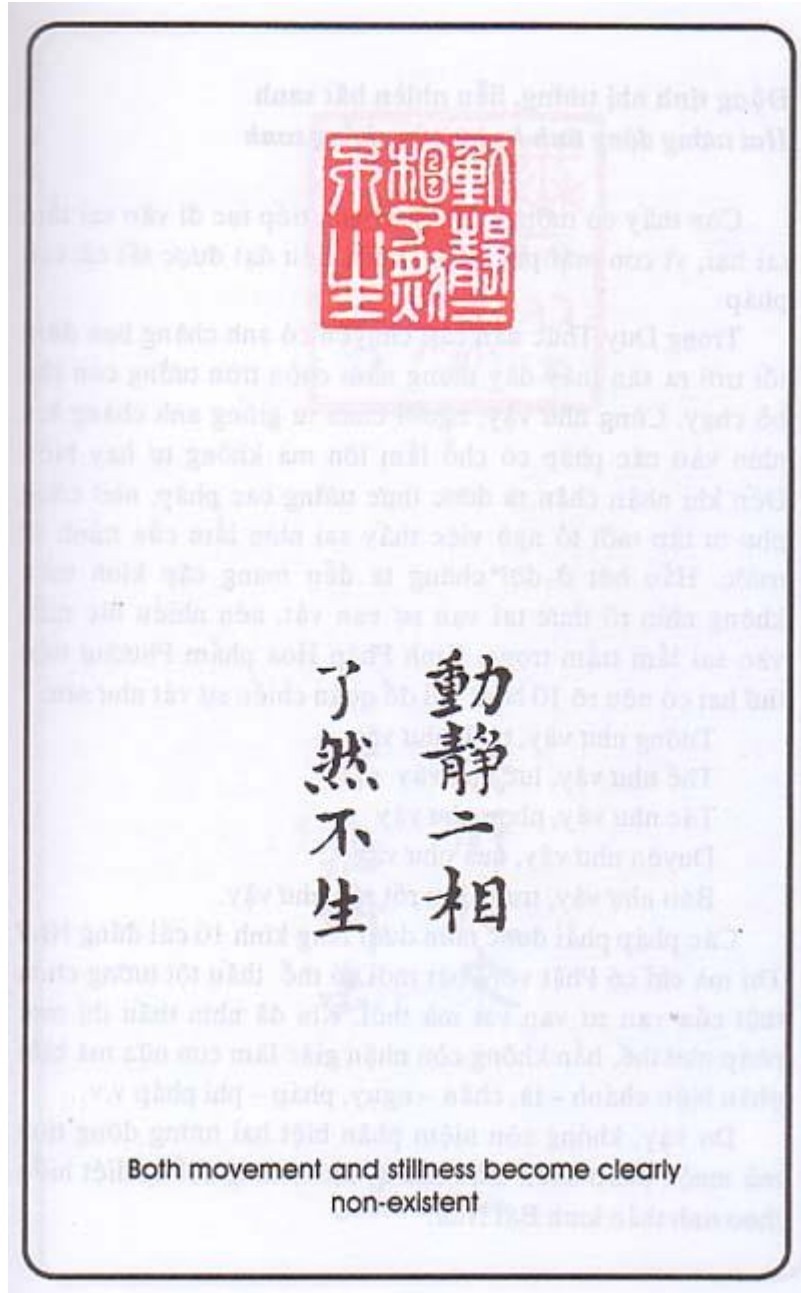 動靜二
相了然
不生
動靜二相
了然不生
Both movement and stillness become clearly
non-existent